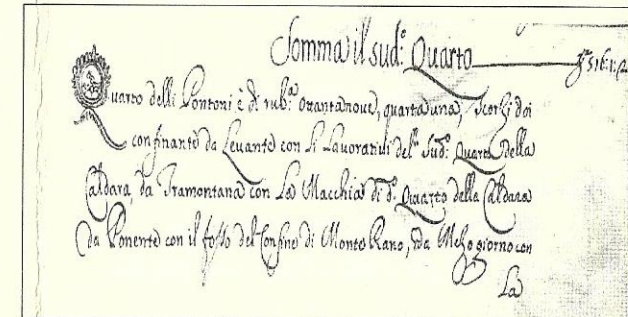 Somma il sud.º Quarto
Quarto delli Pontoni è di rub.ª ottantanove, quarta una, scorzi doi
confinante da Levante con li Lavorativi del sud.º Quarto della
Caldara, da Tramontana con La Macchia di d.º Quarto della Caldara
da Ponente con il fosso del Confine di Monte Rano, da Mezo giorno con
La